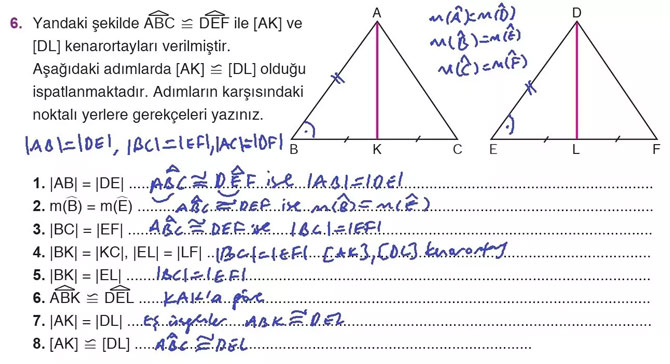 6. Yandaki şekilde ABC ≅ DEF ile [AK] ve
[DL] kenarortayları verilmiştir.
Aşağıdaki adımlarda [AK] ≅ [DL] olduğu
ispatlanmaktadır. Adımların karşısındaki
noktalı yerlere gerekçeleri yazınız.
|AB|=|DE|, |BC|=|EF|, |AC|=|DF|
A
B K C
m(Â)=m(D̂)
m(B̂)=m(Ê)
m(Ĉ)=m(F̂)
D
E L F
1. |AB| = |DE| ABC ≅ DEF ise |AB|=|DE|
2. m(B̂) = m(Ê) ABC ≅ DEF ise m(B̂)=m(Ê)
3. |BC| = |EF| ABC ≅ DEF ise |BC|=|EF|
4. |BK| = |KC|, |EL| = |LF| |BC|=|EF| [AK], [DL] kenarortay
5. |BK| = |EL| |BC|=|EF|
6. ABK ≅ DEL KAK'a göre
7. |AK| = |DL| Eş üçgenler ABK ≅ DEL
8. [AK] ≅ [DL] ABC ≅ DEL